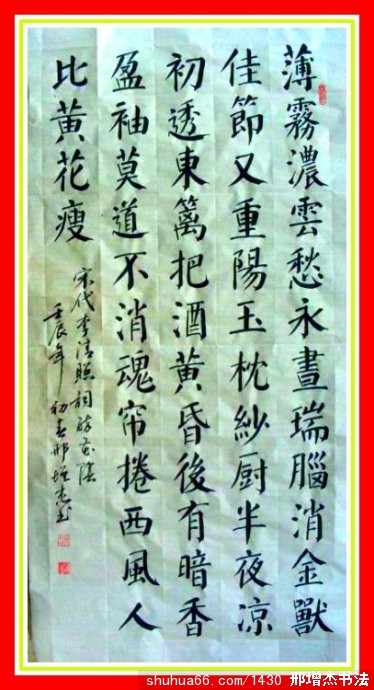 薄霧濃雲愁永晝瑞腦消金獸
佳節又重陽玉枕紗厨半夜凉
初透東籬把酒黄昏後有暗香
盈袖莫道不消魂帘捲西風人
比黄花瘦
宋代李清照詞醉花陰
壬辰年初春邢增杰书
shuhua66.com/1430 邢增杰书法